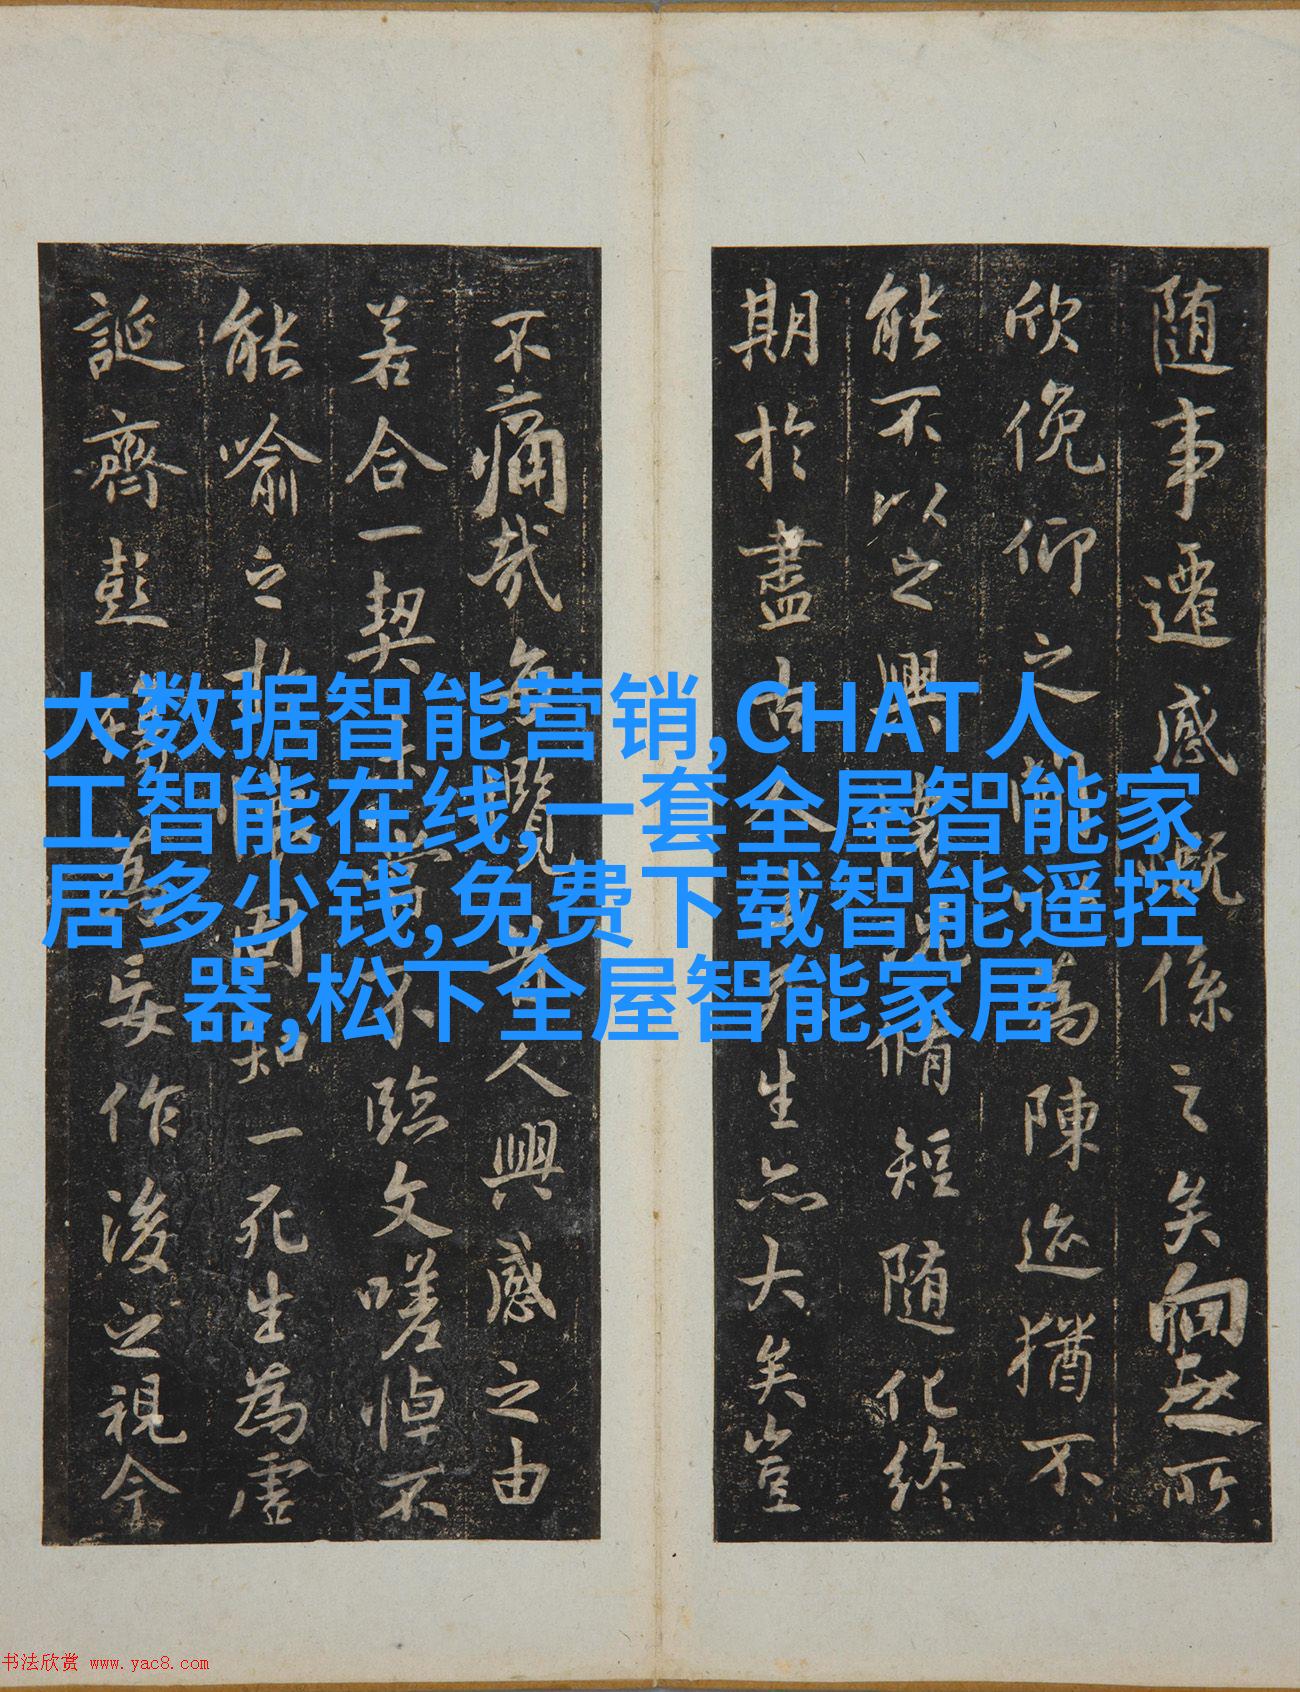 随事遷感慨係之矣向之所
欣俛仰之間以為陳迹猶不
能不以之興懷況脩短随化終
期於盡古人云死生亦大矣豈
不痛哉每覽昔人興感之由
若合一契未嘗不臨文嗟悼不
能喻之於懷固知一死生為虛
誕齊彭殤為妄作後之視今
大数据智能营销,CHAT人
工智能在线,一套全屋智能家
居多少钱,免费下载智能遥控
器,松下全屋智能家居
书法欣赏 www.yac8.com